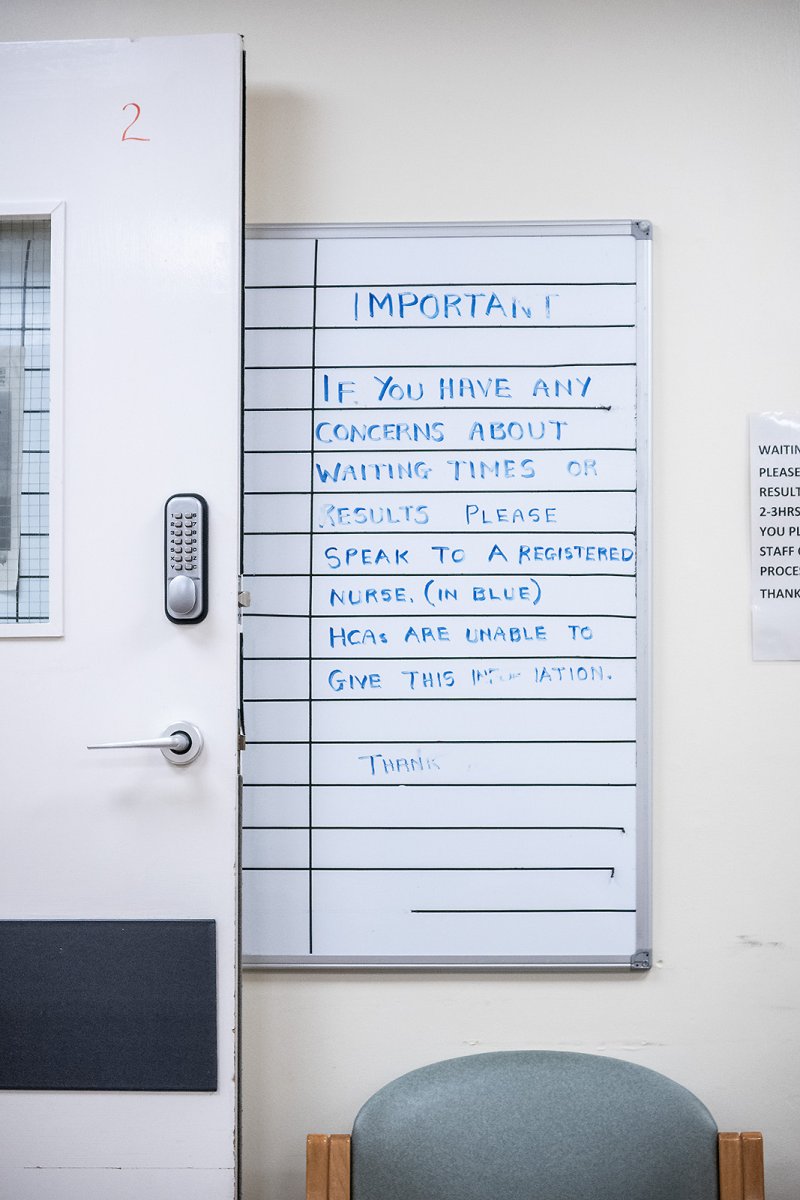 2
IMPORTANT
IF YOU HAVE ANY
CONCERNS ABOUT
WAITING TIMES OR
RESULTS PLEASE
SPEAK TO A REGISTERED
NURSE. (IN BLUE)
HCAs ARE UNABLE TO
GIVE THIS
THANK
WAITIN
PLEASE
RESULT
2-3HRS
YOU PL
STAFF
PROCES
THANK